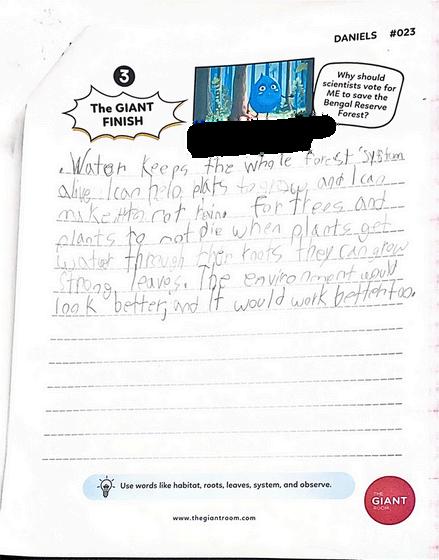 DANIELS #023
3
The GIANT
FINISH
Why should
scientists vote for
ME to save the
Bengal Reserve
Forest?
. Water keeps the whole forest system
alive. I can help plats to grow and I can
make not rain. for trees and
plants to not die when plants get
water through ther roots they can grow
strong leaves. The environment would
look better, and it would work better too.
Use words like habitat, roots, leaves, system, and observe.
www.thegiantroom.com
THE
GIANT
ROOM